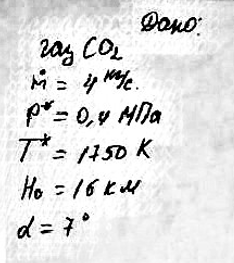 Дано:
газ CO₂
ṁ = 4 кг/с.
P* = 0,4 МПа
T* = 1750 K
H₀ = 16 км
α = 7°